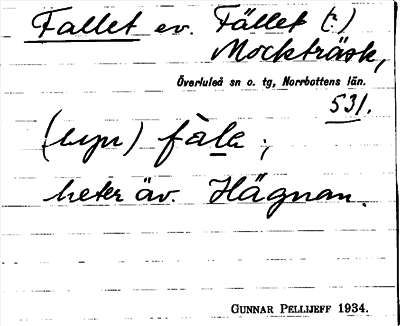 Fallet ev. Fället (?)
Mockträsk,
Överluleå sn o. tg, Norrbottens län.
531.
(byn) fàla ;
heter äv. Hägnan.
GUNNAR PELLIJEFF 1934.